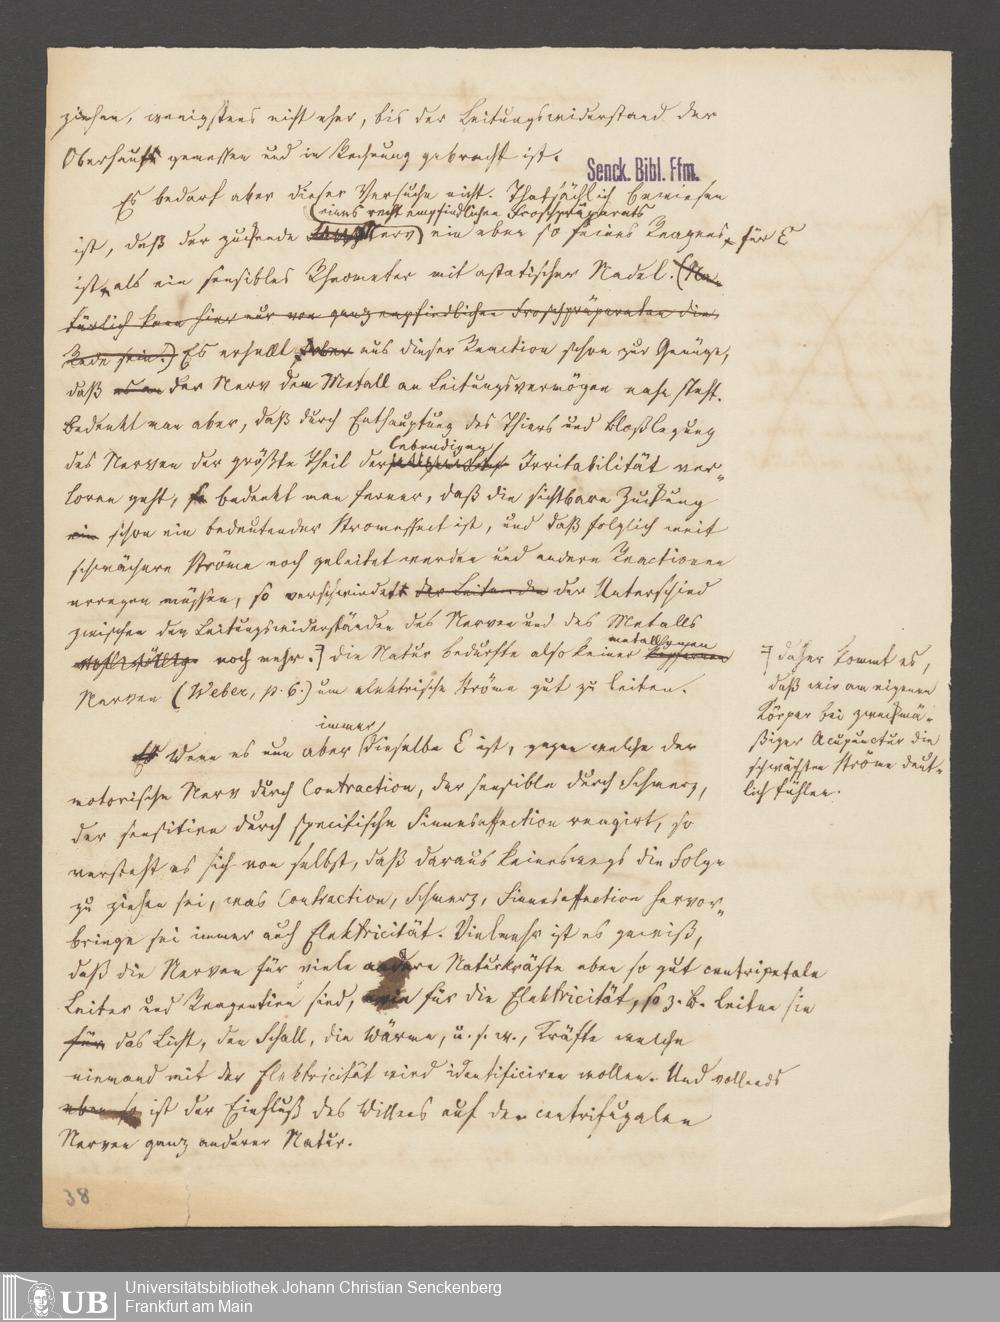 ziehen, wenigstens nicht eher, bis der Leitungswiderstand der
Oberhaut gemessen und in Rechnung gebracht ist.
Senck. Bibl. Ffm.
Es bedarf aber dieser Versuche nicht. Thatsächlich Erwiesen
(eines recht empfindlichen Froschpräparats
ist, daß der zuckende Nerv) ein eben so feines Reagens für E
ist, als ein sensibles Rheometer mit astatischer Nadel. (Na-
türlich kann hier nur von ganz empfindlichen Froschpräparaten die
Rede sein.) Es erhellt aber aus dieser Reaction schon zur Genüge,
daß der Nerv dem Metall an Leitungsvermögen nahe steht.
Bedenkt man aber, daß durch Enthauptung des Thiers und Bloßlegung
lebendigen
des Nerven der größte Theil der Irritabilität ver-
loren geht, so bedenkt man ferner, daß die sichtbare Zuckung
ein schon ein bedeutender Stromeffect ist, und daß folglich weit
schwächere Ströme noch geleitet werden und andere Reactionen
erregen müssen, so verschwindet der Leitende der Unterschied
zwischen den Leitungswiderständen des Nerven und des Metalls
metallenen
noch mehr. Die Natur bedurfte also keiner kupfernen
Nerven (Weber, p. 6.) um elektrische Ströme gut zu leiten.
daher kommt es,
daß wir am eigenen
Körper bei zweckmä-
ßiger Acupunctur die
schwächsten Ströme deut-
lich fühlen.
immer
Es Wenn es nun aber dieselbe E ist, gegen welche der
motorische Nerv durch Contraction, der sensible durch Schmerz,
der sensitive durch specifische Sinnesaffection reagirt, so
versteht es sich von selbst, daß daraus keineswegs die Folge
zu ziehen sei, was Contraction, Schmerz, Sinnesaffection hervor-
bringe sei immer auch Elektricität. Vielmehr ist es gewiß,
daß die Nerven für viele andere Naturkräfte eben so gut centripetale
Leiter und Reagentien sind, wie für die Elektricität, so z. B. leiten sie
für das Licht, den Schall, die Wärme, u. s. w., Kräfte welche
niemand mit der Elektricität wird identificiren wollen. Und vollends
eben so ist der Einfluß des Willens auf den centrifugalen
Nerven ganz anderer Natur.
38
UB
Universitätsbibliothek Johann Christian Senckenberg
Frankfurt am Main